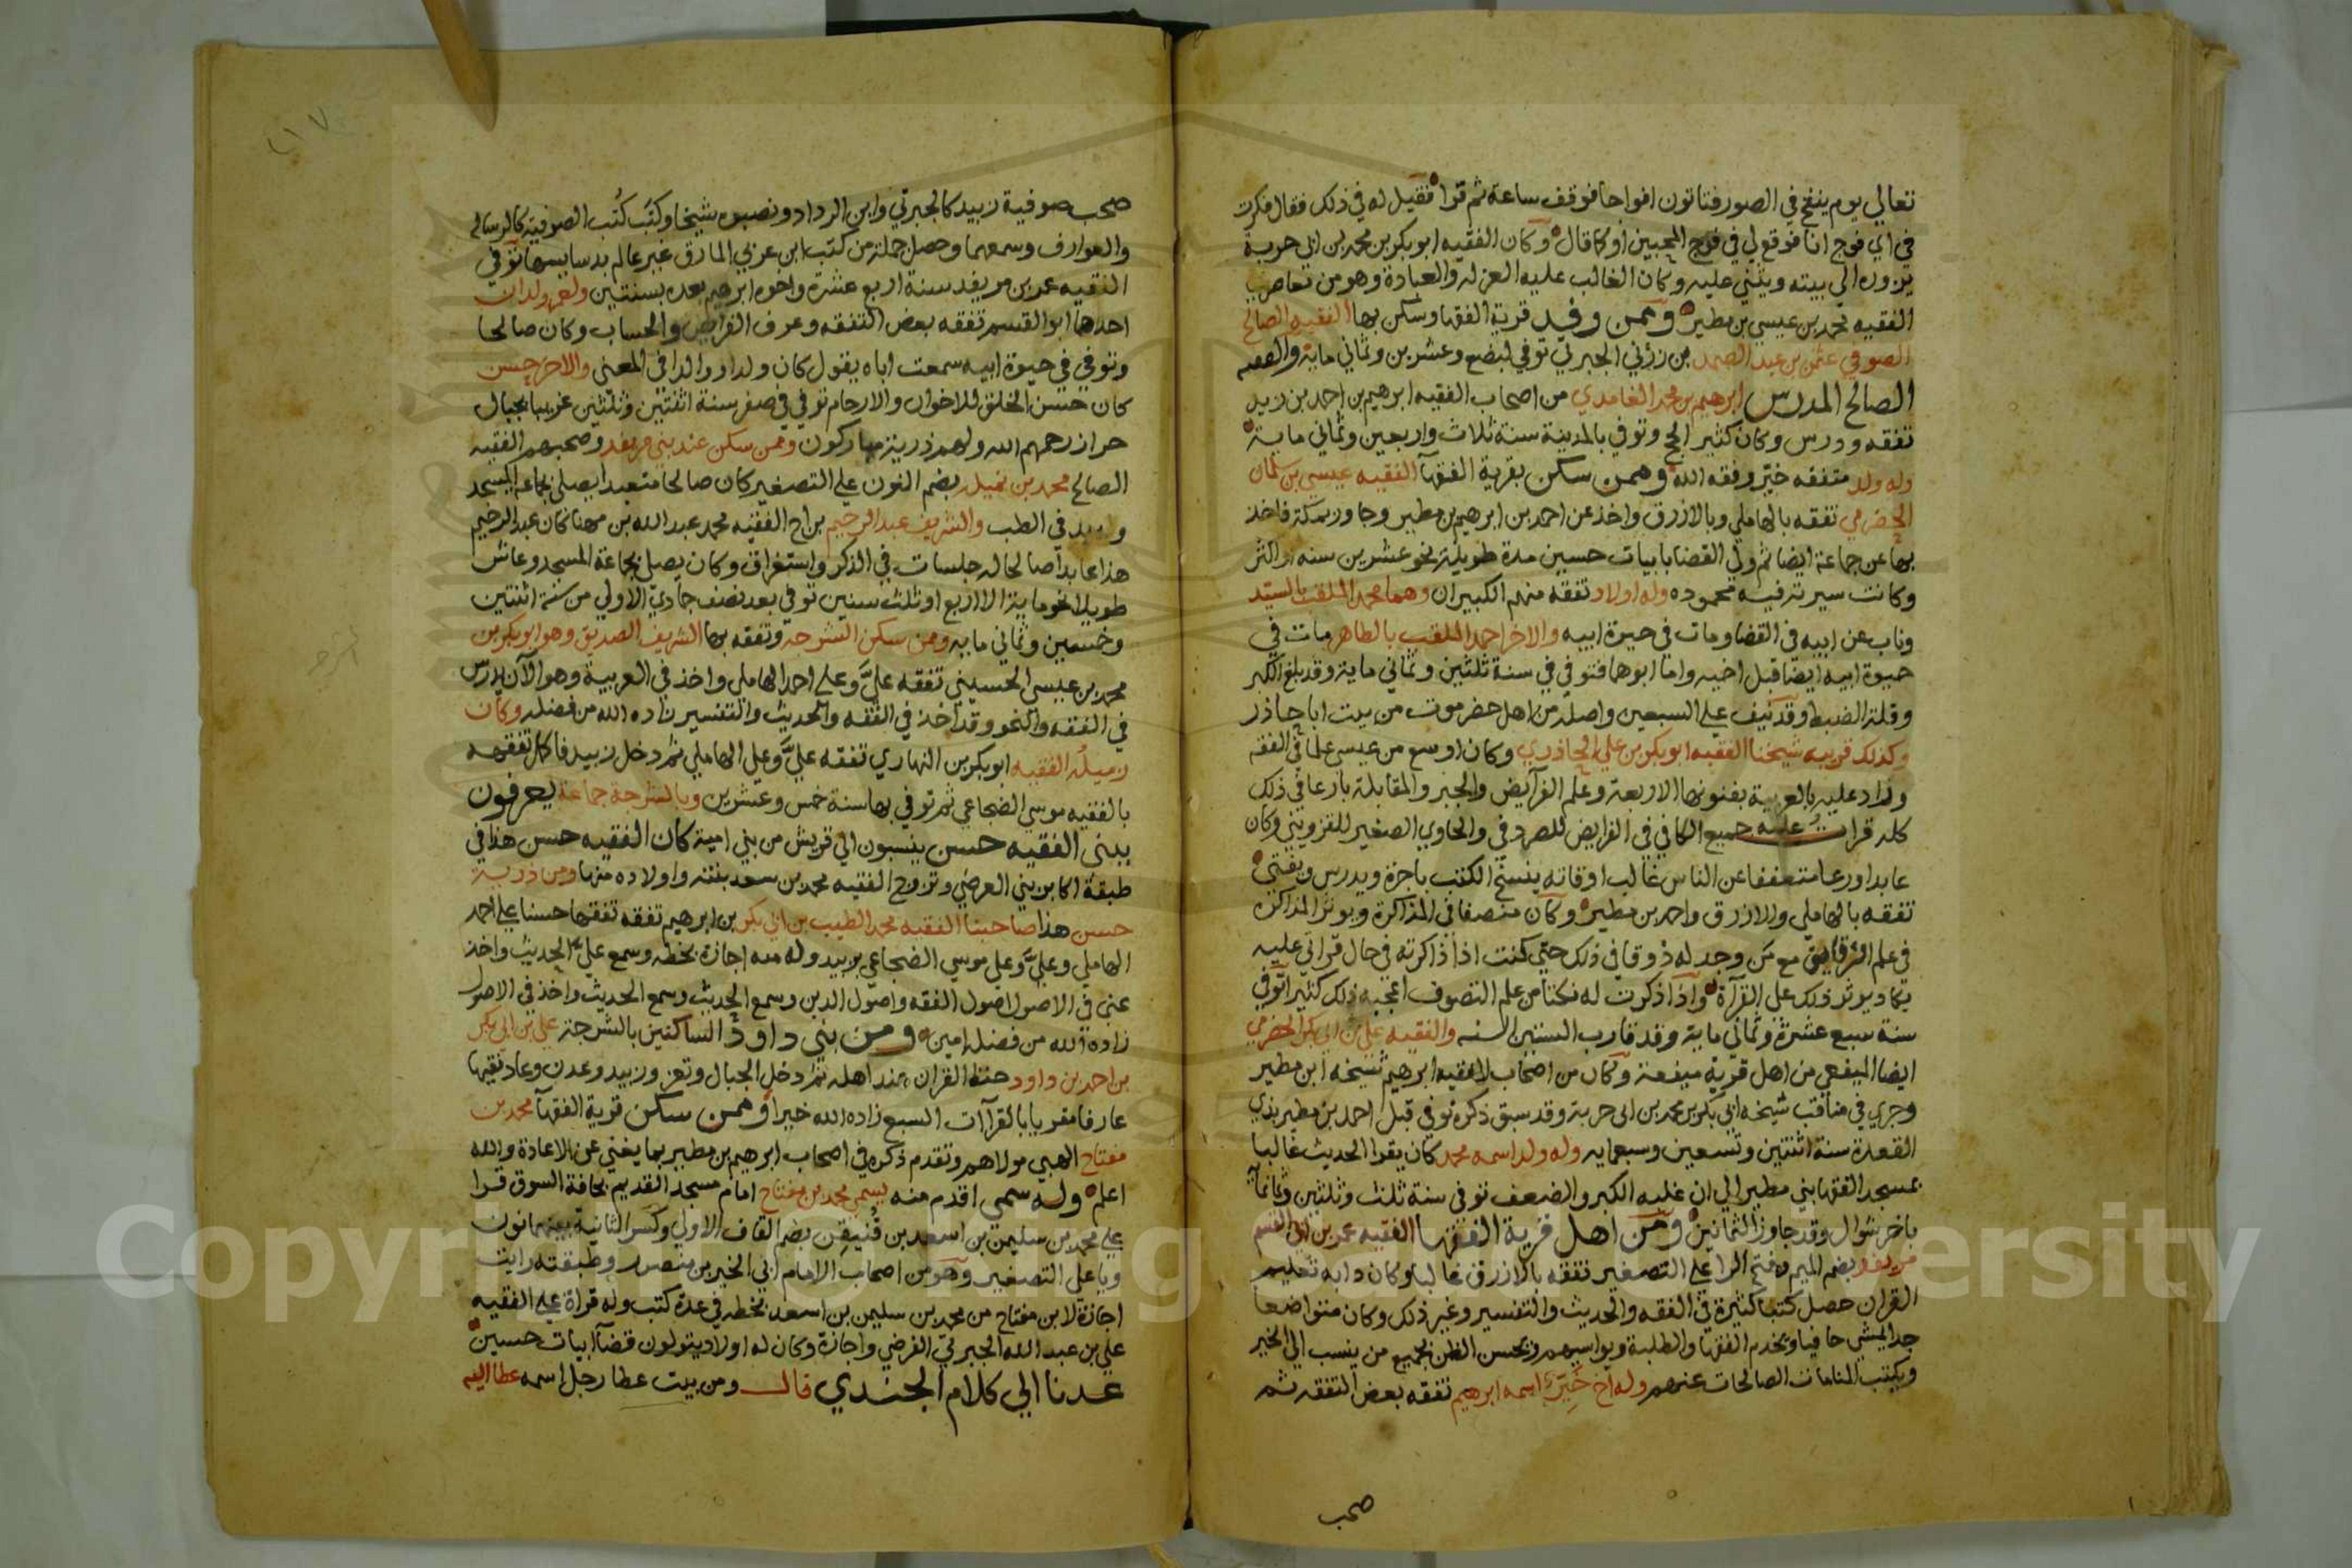 تعالي يوم ينفخ في الصور فتاتون افواجا فوقف ساعة ثم قرا فقيل له في ذلك فقال فكرت
في اي فوج انا فوقع لي في فوج المحبين او كما قال وكان الفقيه ابوبكر بن محمد بن ابي حربة
يزوره الى بيته ويثني عليه وكان الغالب عليه العزله والعبادة وهو من تعاصر
الفقيه محمد بن عيسي بن مطير وممن وفد قرية الفقها وسكن بها الفقيه الصالح
الصوفي عثمن بن عبد الصمد الجبرتي توفي لبضع وعشرين وثماني ماية والفقيه
الصالح المدرس ابرهيم بن محمد الغامدي من اصحاب الفقيه ابرهيم بن احمد بن زيد
تفقه ودرس وكان كثير الحج وتوفي بالمدينة سنة ثلاث واربعين وثماني ماية
وله ولد متفقه خير وفقه الله وممن سكن بقرية الفقهآ الفقيه عيسي بن سلمان
الحضرمي تفقه بالهاملي وبالازرق واخذ عن احمد بن ابرهيم بن مطير وجاور بمكة فاخذ
بها عن جماعة ايضا ثم ولي القضا بابيات حسين مدة طويلة نحو عشرين سنه او اكثر
وكانت سيرته فيه محموده وله اولاد تفقه منهم الكبيران وهما محمد الملقب بالسيد
وناب عن ابيه في القضا ومات في حيوة ابيه والاخر احمد الملقب بالطاهر مات في
حيوة ابيه ايضا قبل اخيه واما ابوهما فتوفي في سنة ثلثين وثماني ماية وقد بلغ الكبر
وقلة الضبط وقد نيف علي السبعين واصله من اهل حضرموت من بيت ابا جاذر
وكذلك قريبه شيخنا الفقيه ابوبكر بن علي الجاذري وكان اوسع من عيسى علما في الفقه
وزاد عليه بالعربية بفنونها الاربعة وعلم الفرآيض والجبر والمقابلة بارعا في ذلك
كله قرات عليه جميع الكافي في الفرايض للصردفي والحاوي الصغير للقزويني وكان
عابدا ورعا متعففا عن الناس غالب اوقاته ينسخ الكتب باجرة ويدرس ويفتي
تفقه بالهاملي والازرق واحمد بن مطير وكان منصفا في المذاكرة ويوثر المذاكرة
في علم مع من وجد له ذوقا في ذلك حتى كنت اذا ذاكرته في حال قراتي عليه
يكاد يوثر ذلك على القرآة واذا ذكرت له نكتا من علم التصوف اعجبه ذلك كثيرا توفي
سنة سبع عشرة وثماني ماية وقد قارب الستين السنه والفقيه علي بن ابي بكر الحضرمي
ايضا الميفعي من اهل قرية ميفعة وكان من اصحاب الفقيه ابرهيم شيخه ابن مطير
وجري في مناقب شيخه ابي بكر بن محمد بن ابي حربة وقد سبق ذكره توفي قبل احمد بن مطير بذي
القعدة سنة اثنتين وتسعين وسبعمايه وله ولد اسمه محمد كان يقرا الحديث غالبا
بمسجد الفقها بني مطير الي ان غلبه الكبر والضعف توفي سنة ثلث وثلثين
باخر شوال وقد جاوز الثمانين ومن اهل قرية الفقها الفقيه عمر بن ابي القسم
بضم الميم وفتح الرا على التصغير تفقه بالازرق غالبا وكان دابه تعليم
القران حصل كتبا كثيرة في الفقه والحديث والتفسير وغير ذلك وكان متواضعا
جدا يمشي حافيا ويخدم الفقها والطلبة ويواسيهم ويحسن الظن بجميع من ينسب الي الخير
ويكتب المنامات الصالحات عنهم وله اخ خير اسمه ابرهيم تفقه بعض التفقه ثم
صحب
٢١٧
صحب صوفية زبيد كالجبرتي وابن الرداد ونصبوه شيخا وكتب كتب الصوفية كالرسالة
والعوارف وسمعهما وحصل جملة من كتب ابن عربي المارق غير عالم بدسايسها توفي
الفقيه عمر بن سنة اربع عشرة واخوه ابرهيم بعده بسنتين ولعمر ولدان
احدهما ابو القسم تفقه بعض التفقه وعرف الفرايض والحساب وكان صالحا
وتوفي في حيوة ابيه سمعت اباه يقول كان ولدا والدا في المعنى والاخر حسن
كان حسن الخلق للاخوان والارحام توفي في صفر سنة اثنتين وثلثين غريبا بجبال
حراز رحمهم الله ولهم ذرية مباركون وممن سكن عند بني وصحبهم الفقيه
الصالح محمد بن بضم النون علي التصغير كان صالحا متعبدا يصلي بجماعة المسجد
في الطب والشريف عبد الرحيم بن اخ الفقيه محمد عبد الله بن مهنا كان عبد الرحيم
هذا عابدا صالحا له جلسات في الذكر واستغراق وكان يصلي بجماعة المسجد وعاش
طويلا نحو ماية الا اربع او ثلث سنين توفي بعد نصف جمادي الاولي من سنة اثنتين
وخمسين وثماني مايه ومن سكن الشرجه وتفقه بها الشريف الصديق وهو ابوبكر بن
محمد بن عيسى الحسيني تفقه علي وعلى احمد الهاملي واخذ في العربية وهو الآن يدرس
في الفقه والنحو وقد اخذ في الفقه والحديث والتفسير زاده الله من فضله وكان
زميله الفقيه ابوبكر بن النهاري تفقه علي وعلي الهاملي ثم دخل زبيد فاكمل تفقهه
بالفقيه موسي الضجاعي ثم توفي بها سنة خمس وعشرين وبالشرجة جماعة يعرفون
ببني الفقيه حسن ينسبون الي قريش من بني امية كان الفقيه حسن هذا في
طبقة اكابر بني العرضي وتزوج الفقيه محمد بن سعد بنته واولاده منها ومن ذرية
حسن هذا صاحبنا الفقيه محمد الطيب بن ابي بكر بن ابرهيم تفقه تفقها حسنا علي احمد
الهاملي وعلي وعلي موسي الضجاعي بزبيد وله منه اجازة بخطه وسمع علي الحديث واخذ
عني في الاصول اصول الفقه واصول الدين وسمع الحديث وسمع الحديث واخذ في الاصول
زاده الله من فضله امين ومن بني داود الساكنين بالشرجة علي بن ابي بكر
بن احمد بن داود حفظ القران عند اهله ثم دخل الجبال وتعز وزبيد وعدن وعاد فقيها
عارفا مقريا بالقراآت السبع زاده الله خيرا وممن سكن قرية الفقهآ محمد بن
مفتاح الهبي مولاهم وتقدم ذكره في اصحاب ابرهيم بن مطير بما يغني عن الاعادة والله
اعلم وله سمي اقدم منه يسمى محمد بن مفتاح امام مسجد القديم بحافة السوق قرا
علي محمد بن سليمن بن اسعد بن قنيقن بضم القاف الاولى وكسر الثانية بينهما نون
ويا على التصغير وهو من اصحاب الامام ابي الخير بن منصور وطبقته رايت
اجازة لابن مفتاح من محمد بن سليمن بن اسعد بخطه في عدة كتب وله قراة علي الفقيه
علي بن عبد الله الجبرتي الفرضي واجازة وكان له اولاد يتولون قضآ ابيات حسين
عدنا الي كلام الجندي قال ومن بيت عطا رجل اسمه عطا اليه
Copyright © King Saud University